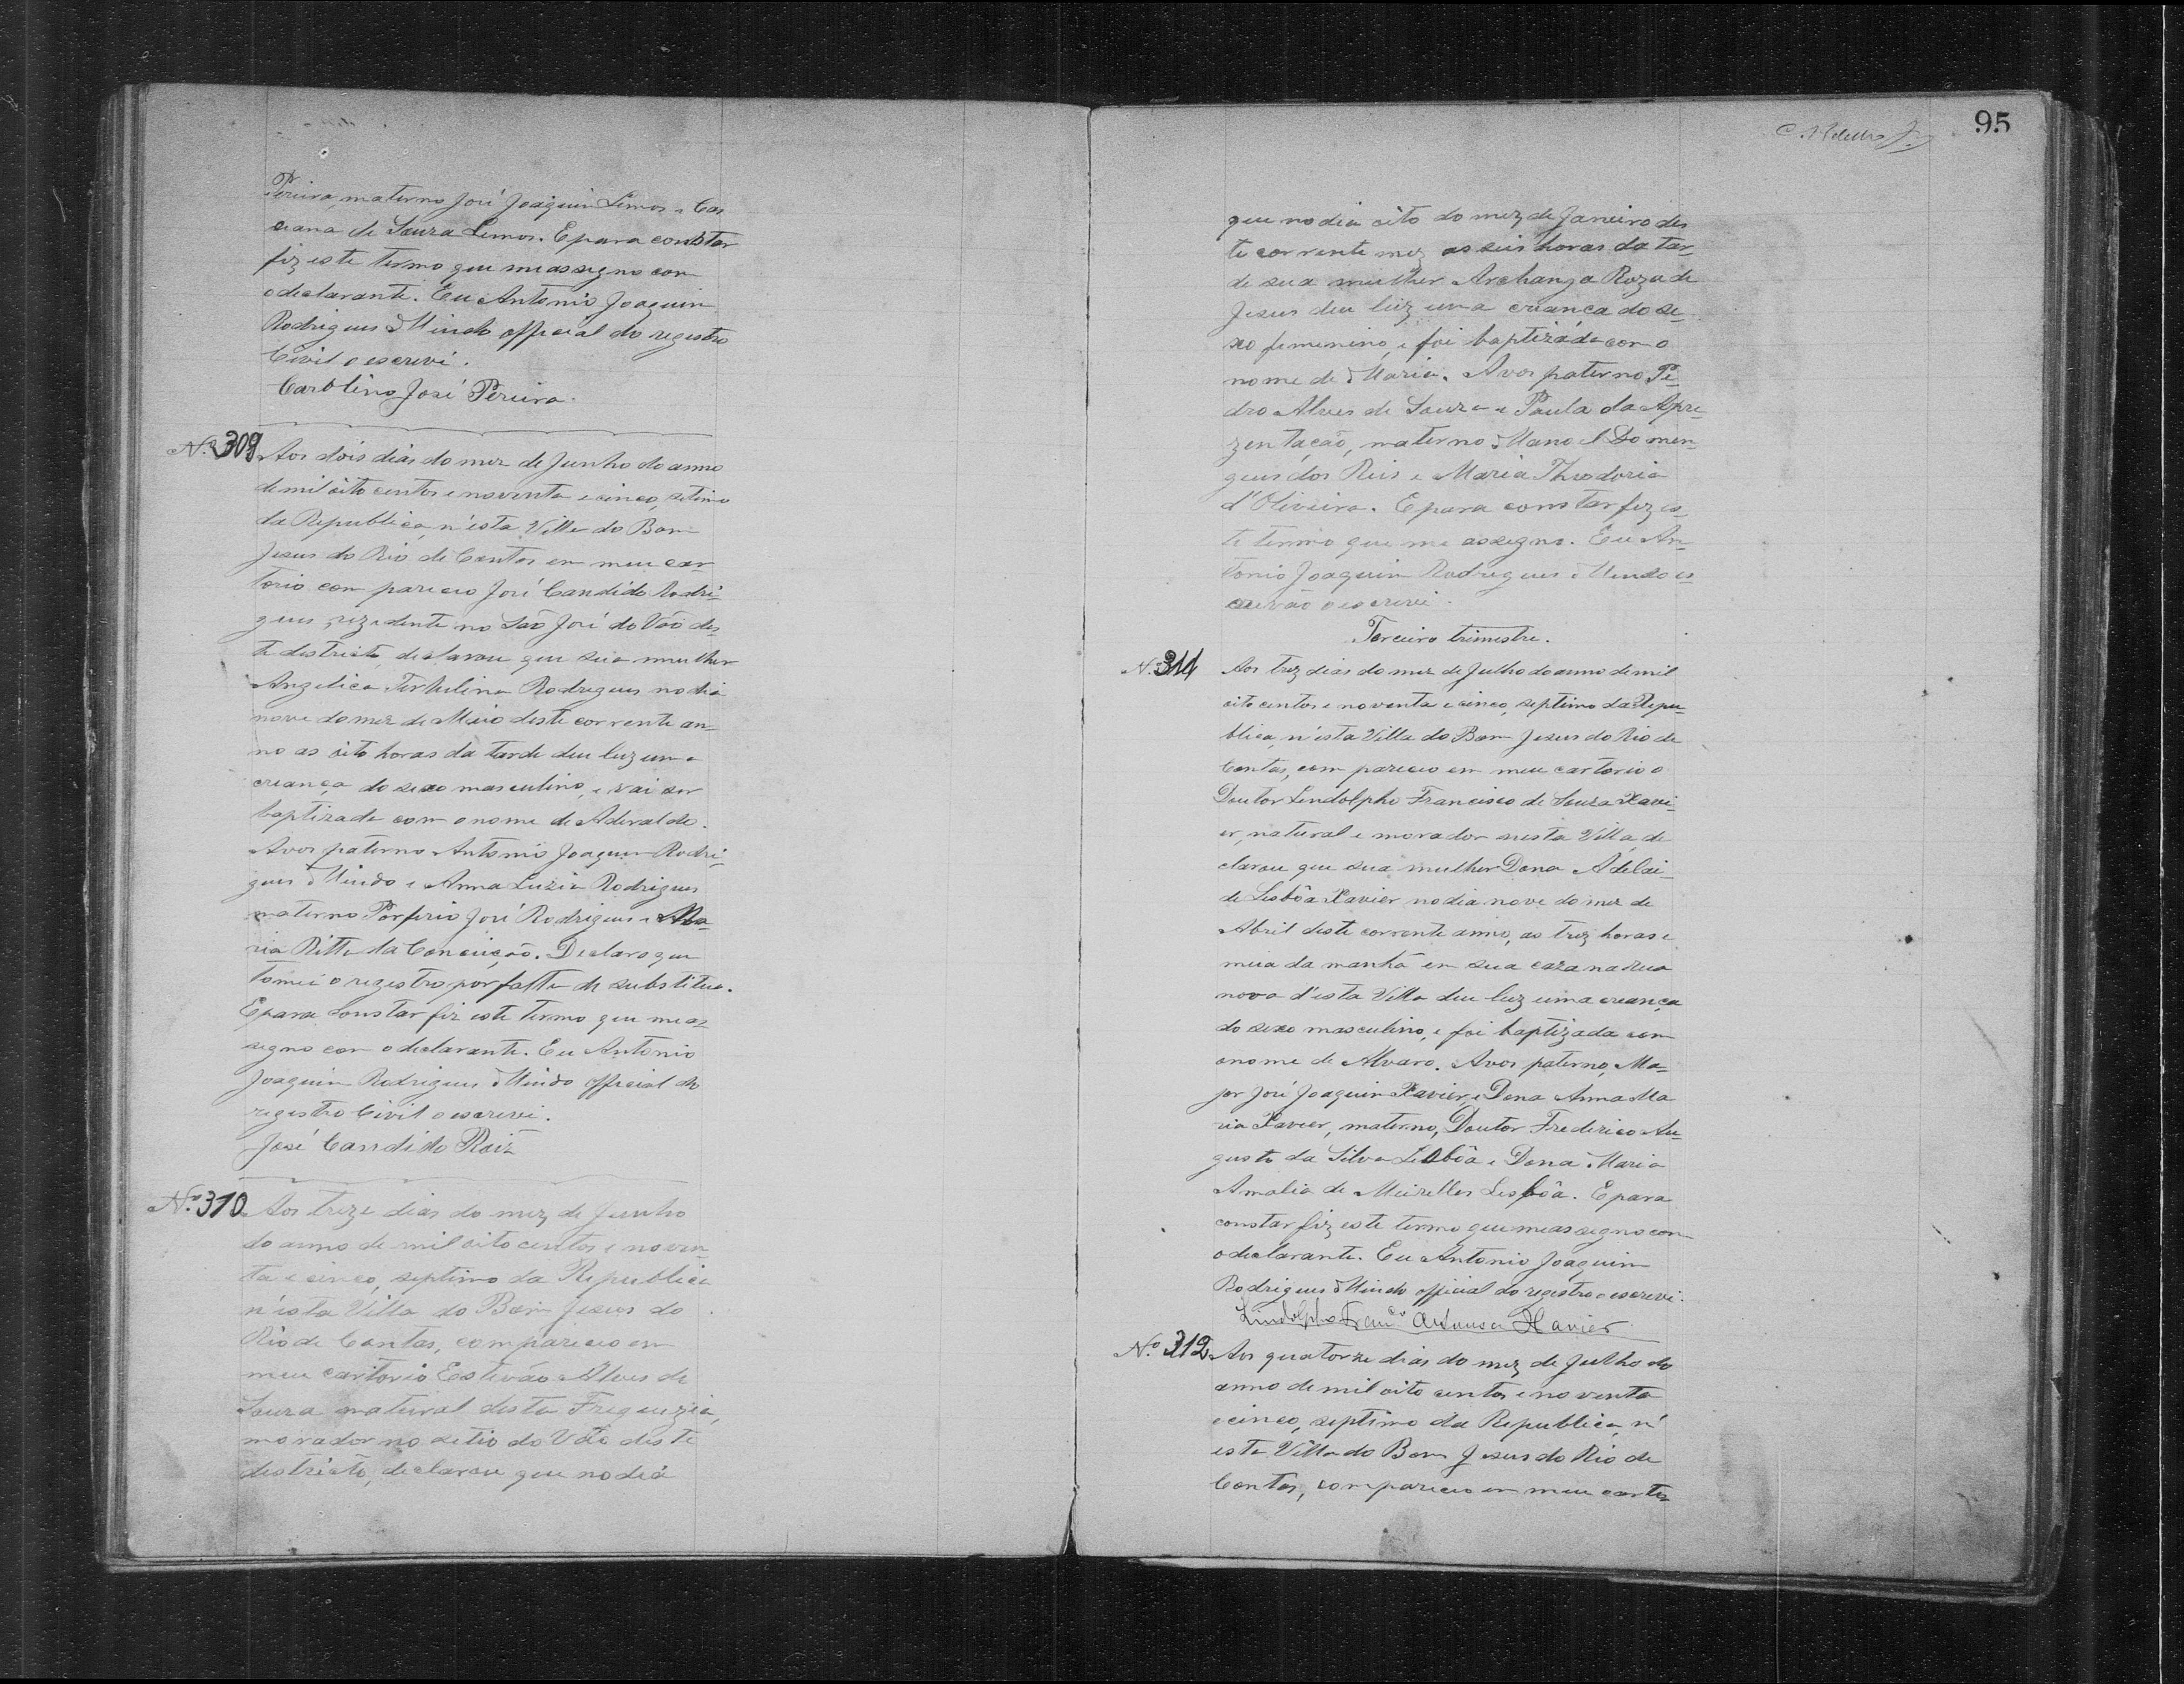 Pereira, materno José Joaquim Lemos e Cas
ciana de Souza Lemos. E para constar
fiz este termo que me assegno com
o declarante. Eu Antonio Joaquim
Rodrigues Mindo official do registro
Civil o escrevi.
Carolino José Pereira.
Nº 309 Aos dois dias do mez de Junho do anno
de mil oito centos e noventa e cinco, setimo
da Republica, n'esta Villa do Bom
Jesus do Rio de Contas em meu car
torio compareceo José Candido Rodri-
gues, rezedente no São José do Vão des-
te destricto, declarou que sua mulher
Angelica Tertulina Rodrigues no dia
nove do mez de Maio deste corrente an-
no as oito horas da tarde deu luz uma
creança do sexo masculino, e vai ser
baptizada com o nome de Aderaldo.
Avos paterno Antonio Joaquim Rodri-
gues Mindo e Anna Luzia Rodrigues
materno Porfirio José Rodrigues e Ma-
ria Ritta da Conceição. Declaro que
tomei o registro por falta de substituo.
E para constar fiz este termo que me as-
segno com o declarante. Eu Antonio
Joaquim Rodrigues Mindo official do
registro Civil o escrevi.
José Candido Roiz
Nº 310 Aos treze dias do mez de Junho
do anno de mil oito centos e noven-
ta e cinco, septimo da Republica
n'esta Villa do Bom Jesus do
Rio de Contas, compareceo em
meu cartorio Estevão Alves de
Souza natural desta Freguezia,
morador no setio do Vão deste
destricto, declarou que no dia
95
que no dia oito do mez de Janeiro des
te corrente mez as seis horas da tar-
de sua mulher Archanja Roza de
Jesus deu luz uma creança do se-
xo femenino, e foi baptizada com o
nome de Maria. Avos paterno Pe-
dro Alves de Souza e Paula da Apre-
zentação, materno Manoel Domin-
gues dos Reis e Maria Theodoria
d'Oliveira. E para constar fiz es-
te termo que me assegno. Eu An-
tonio Joaquim Rodrigues Mindo es-
crevão o escrevi.
Terceiro trimestre.
Nº 311 Aos trez dias do mez de Julho do anno de mil
oito centos e noventa e cinco, septimo da Repu-
blica, n'esta Villa do Bom Jesus do Rio de
Contas, compareceo em meu cartorio o
Doutor Lendolpho Francisco de Souza Xavi-
er, natural e morador nesta Villa, de
clarou que sua mulher Dona Adelai-
de Lesbôa Xavier no dia nove do mez de
Abril deste corrente anno, as trez horas e
meia da manhã em sua caza na Rua
nova d'esta Villa deu luz uma creança
do sexo masculino, e foi baptizada com
o nome de Alvaro. Avos paterno, Ma-
jor José Joaquim Xavier, e Dona Anna Ma
ria Xavier, materno, Doutor Frederico Au-
gusto da Silva Lesbôa e Dona Maria
Amalia de Meirelles Lesbôa. E para
constar fiz este termo que me assegno com
o declarante. Eu Antonio Joaquim
Rodrigues Mindo official do registro o escrevi.
Lindolpho Franco de Souza Xavier
Nº 312 Aos quatorze dias do mez de Julho do
anno de mil oito centos e noventa
e cinco, septimo da Republica, n'
esta Villa do Bom Jesus do Rio de
Contas, compareceo em meu carto-